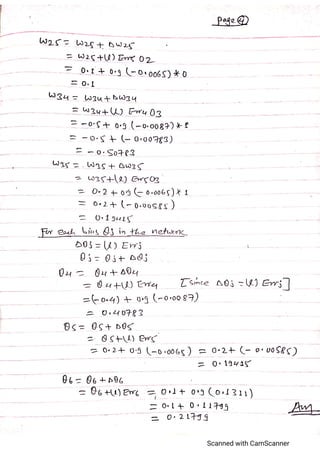 Page 4
W25 = W25 + ΔW25
= W25 + (l) Err5 O2
= 0.1 + 0.9 (-0.0065) * 0
= 0.1
W34 = W34 + ΔW34
= W34 + (l) Err4 O3
= -0.5 + 0.9 (-0.0087) * 1
= -0.5 + (-0.00783)
= -0.50783
W35 = W35 + ΔW35
= W35 + (l) Err5 O3
= 0.2 + 0.9 (-0.0065) * 1
= 0.2 + (-0.00585)
= 0.19415
For each bias θj in the network
Δθj = (l) Errj
θj = θj + Δθj
θ4 = θ4 + Δθ4
= θ4 + (l) Err4 [since Δθj = (l) Errj]
= (-0.4) + 0.9 (-0.0087)
= 0.40783
θ5 = θ5 + Δθ5
= θ5 + (l) Err5
= 0.2 + 0.9 (-0.0065) = 0.2 + (-0.00585)
= 0.19415
θ6 = θ6 + Δθ6
= θ6 + (l) Err6 = 0.1 + 0.9 (0.1311)
= 0.1 + 0.11799 Ans
= 0.21799
Scanned with CamScanner